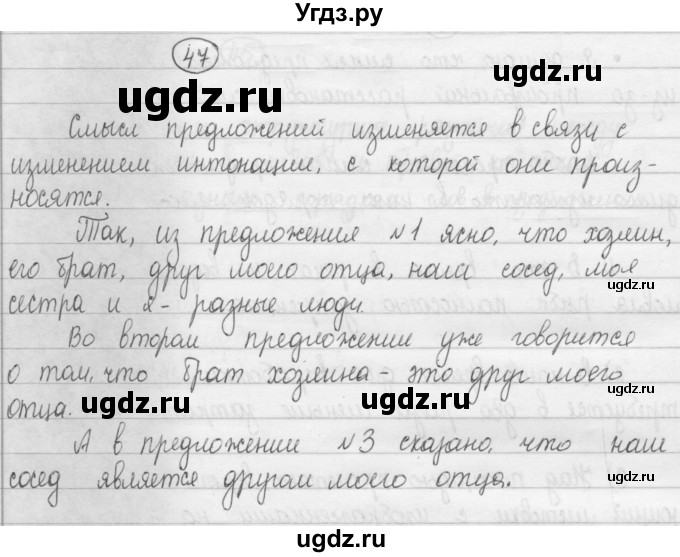 Угдз.ру
47
ugdz.ru
ugdz.ru
Смысл предложений изменяется в связи с
изменением интонации, с которой они произ-
носятся.
Так, из предложения №1 ясно, что хозяин,
его брат, друг моего отца, наш сосед, моя
сестра и я - разные люди.
ugdz.ru
ugdz.ru
Во втором предложении уже говорится
о том, что брат хозяина - это друг моего
отца.
ugdz.ru
ugdz.ru
А в предложении №3 сказано, что наш
сосед является другом моего отца.
ugdz.ru
ugdz.ru